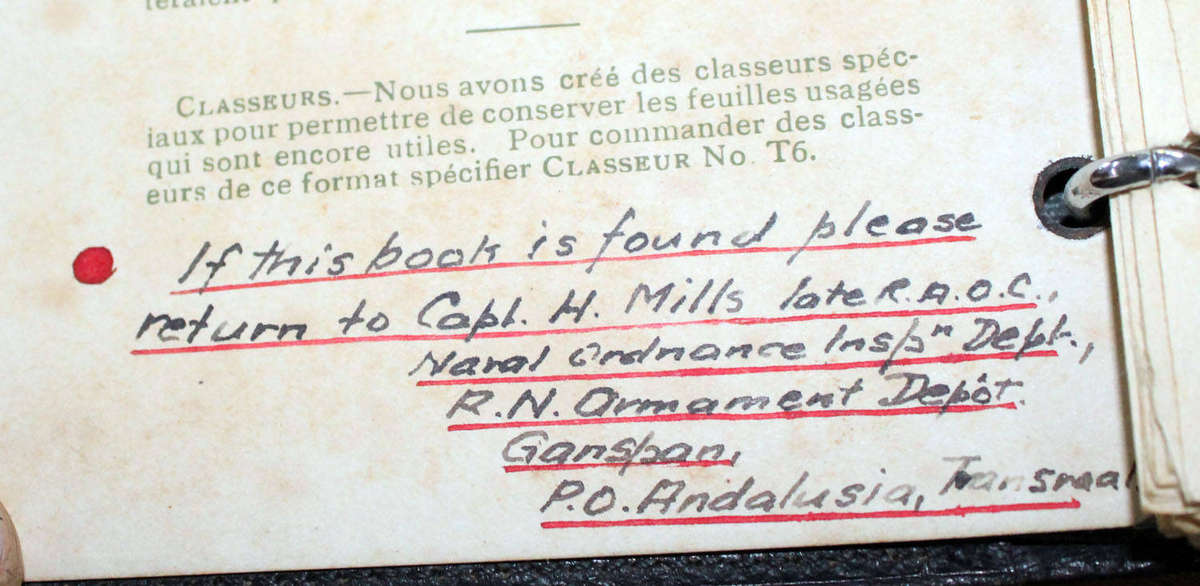 CLASSEURS.—Nous avons créé des classeurs spéc-
iaux pour permettre de conserver les feuilles usagées
qui sont encore utiles. Pour commander des class-
eurs de ce format spécifier CLASSEUR No. T6.
If this book is found please
return to Capt. H. Mills late R.A.O.C.,
Naval Ordnance Inspn Dept.,
R.N. Armament Depôt.
Ganspan,
P.O. Andalusia, Transvaal